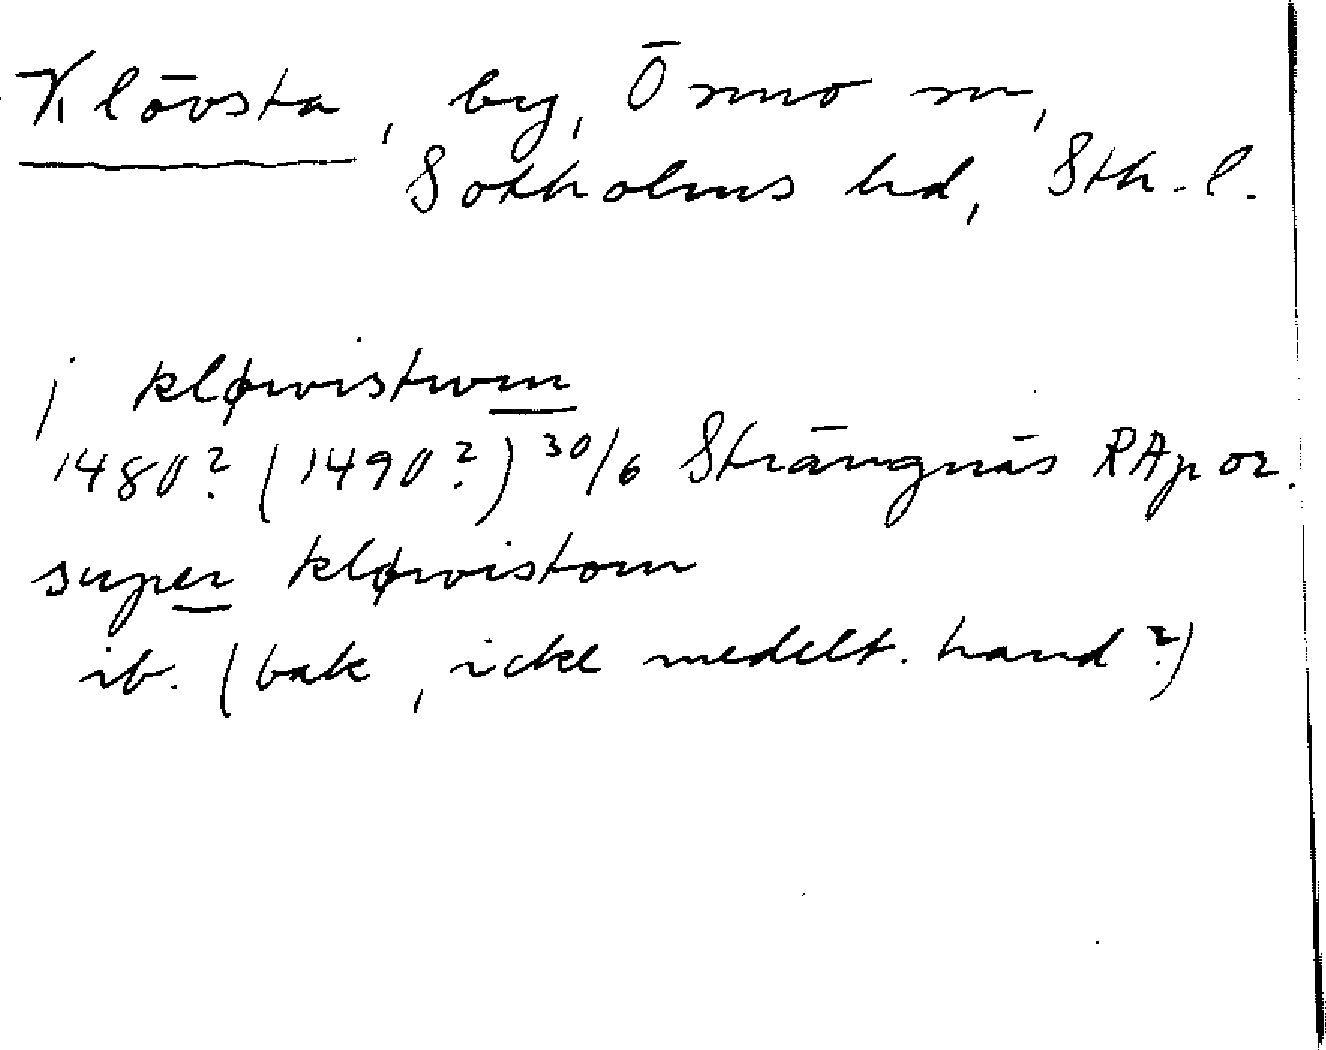 Klövsta, by, Ornö sn,
Sotholms hd, Sth. l.
j kløwistwm
1480? (1490?) 30/6 Strängnäs RAp or.
super kløwistom
ib. (bak, icke medelt. hand?)